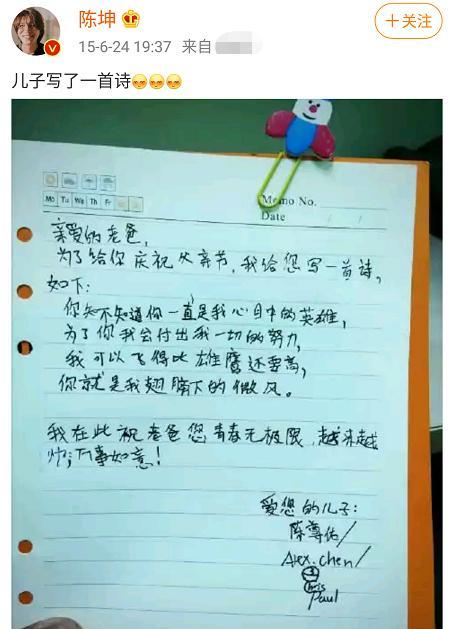 陈坤
+关注
15-6-24 19:37 来自
儿子写了一首诗
Memo No.
Mo Tu We Th Fr
Date / /
亲爱的老爸,
为了给你庆祝父亲节,我给您写一首诗,
如下:
你知不知道你一直是我心目中的英雄,
为了你我会付出我一切的努力,
我可以飞得比雄鹰还要高,
你就是我翅膀下的微风。
我在此祝老爸您青春无极限,越来越
帅,万事如意!
爱您的儿子:
陈尊佑/
Alex.chen/
Chris
Paul